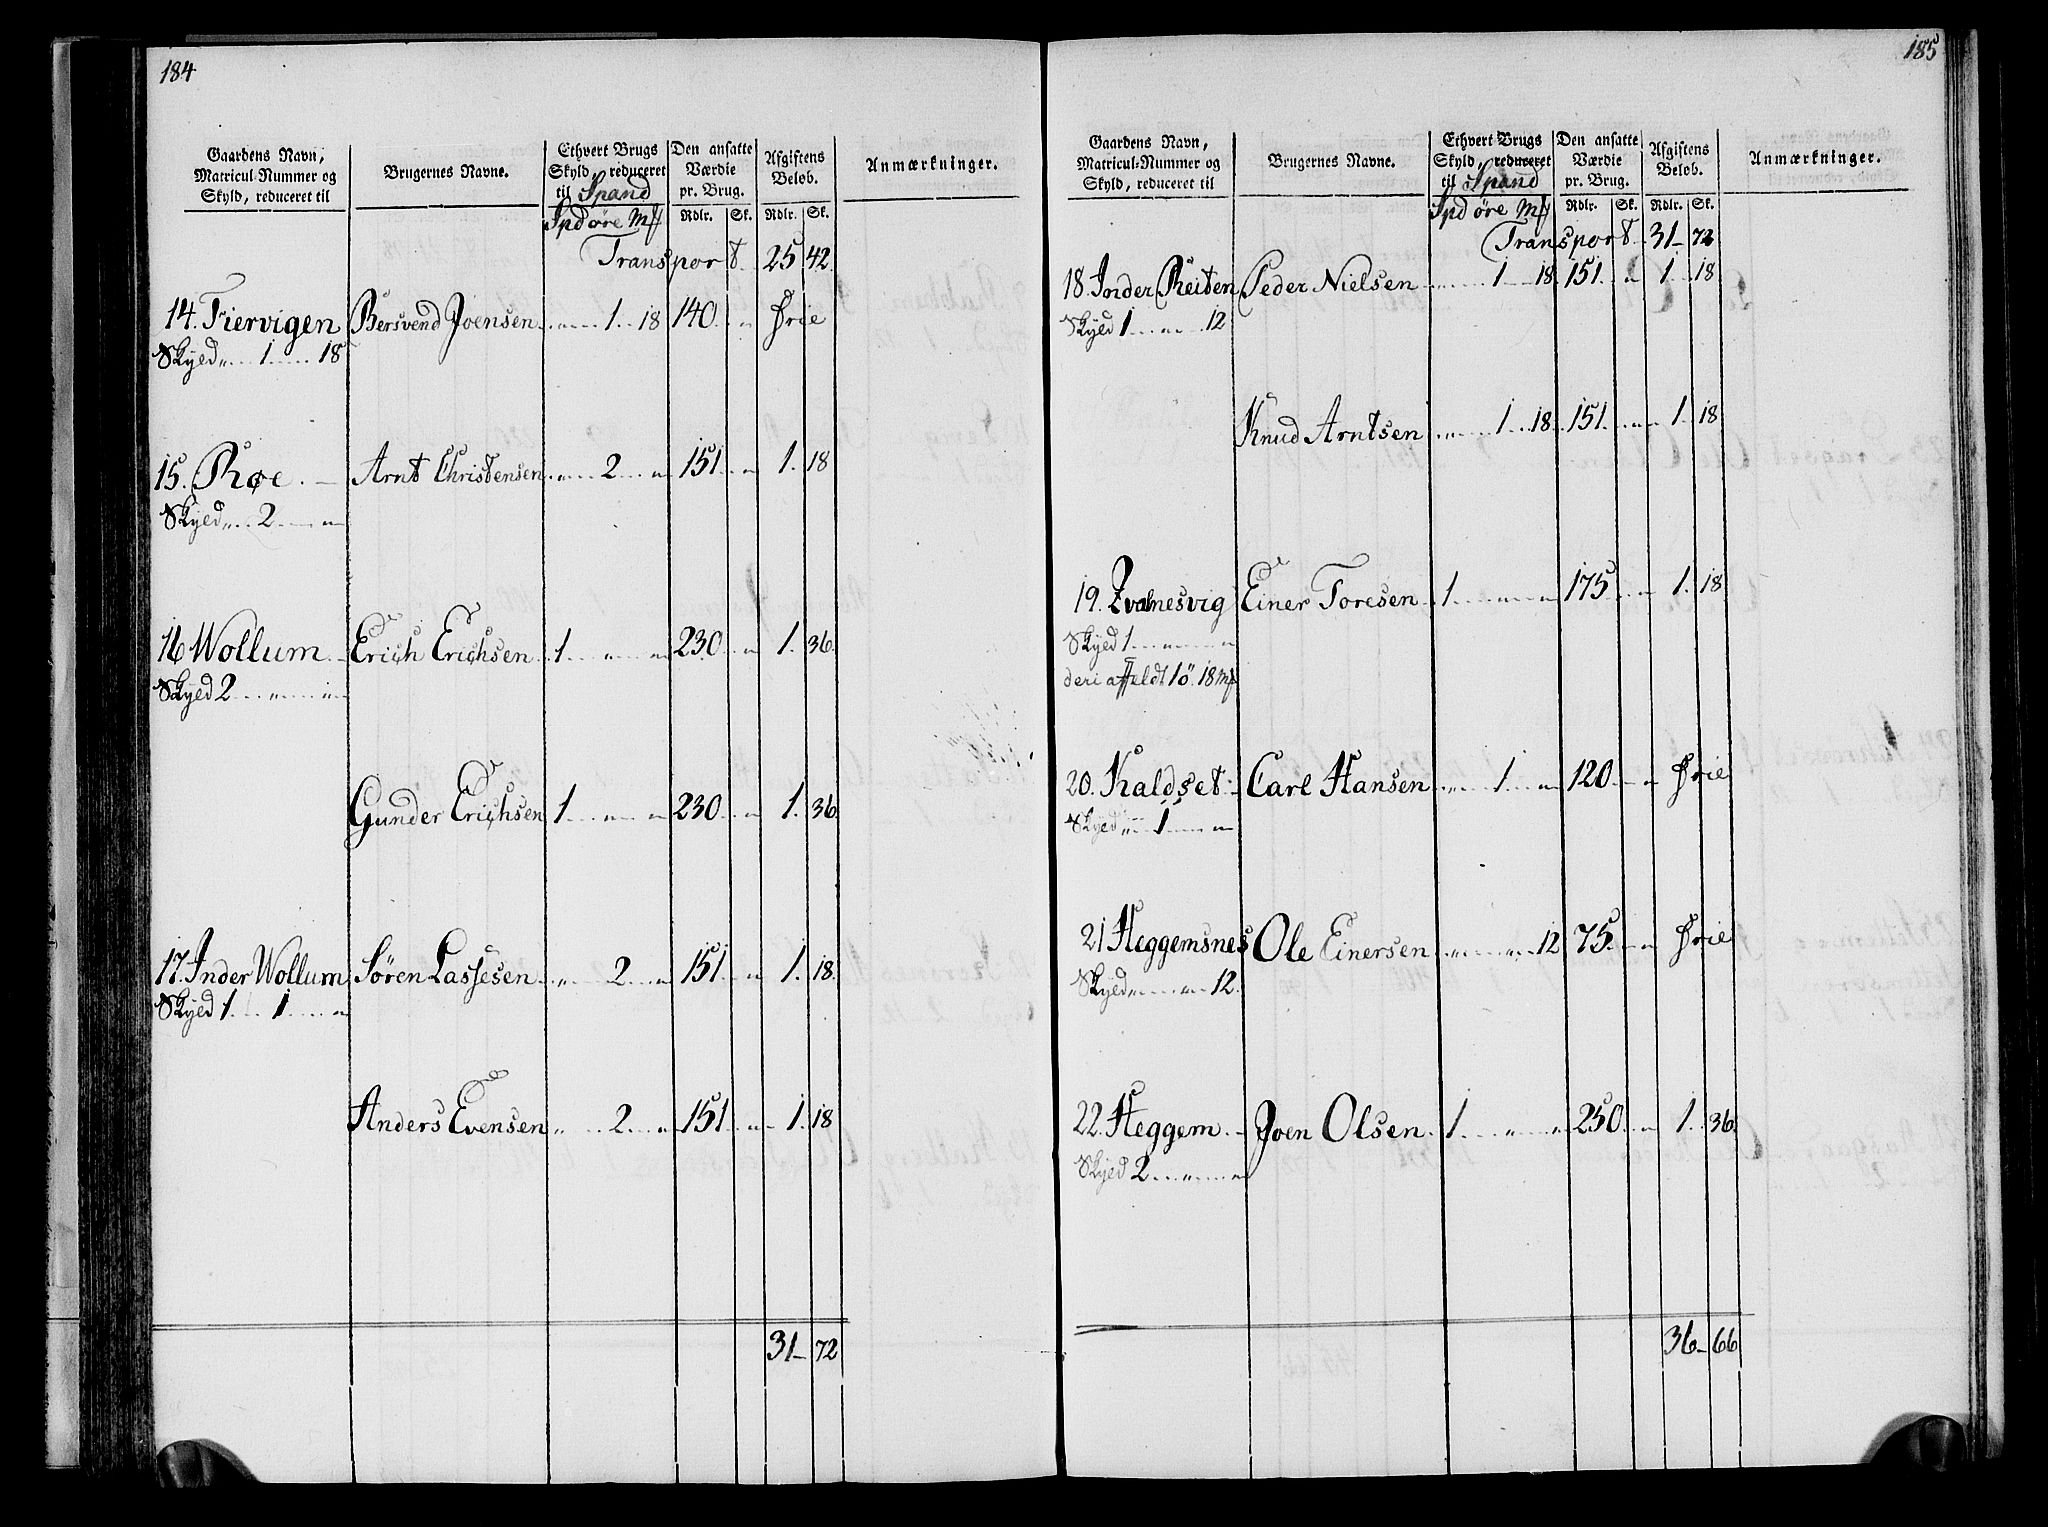 184
Gaardens Navn, Matricul-Nummer og Skyld, reduceret til
Brugernes Navne.
Ethvert Brugs Skyld, reduceret til Spand
Den ansatte Værdie pr. Brug.
Afgiftens Beløb.
Anmærkninger.
Spd øre Mȝ Rdlr. Sk. Rdlr. Sk.
Transport 25 42
14. Fiervigen Bersvend Joensen „ 1 18 140 „ Frie
Skyld „ 1 18
15. Røe Arnt Christensen „ 2 „ 151 „ 1. 18
Skyld „ 2 „
16 Wollum Erich Erichsen 1 „ „ 230 „ 1. 36
Skyld 2 „ „
Gunder Erichsen 1 „ „ 230 „ 1. 36
17. Inder Wollum Søren Lassesen „ 2 „ 151 „ 1. 18
Skyld 1 1 „
Anders Evensen „ 2 „ 151 „ 1. 18
31 72
185
Gaardens Navn, Matricul-Nummer og Skyld, reduceret til
Brugernes Navne.
Ethvert Brugs Skyld, reduceret til Spand
Den ansatte Værdie pr. Brug.
Afgiftens Beløb.
Anmærkninger.
Spd øre Mȝ Rdlr. Sk. Rdlr. Sk.
Transport 31 72
18. Inder Reiten Peder Nielsen „ 1 18 151 „ 1 18
Skyld 1 „ 12
Knud Arntsen „ 1 18 151 „ 1. 18
19. Zvalnesvig Einer Toresen 1 „ „ 175 „ 1. 18
Skyld 1 „ „
deri affeldt 1ö. 18 mȝ
20. Kaldset Carl Hansen „ 1 „ 120 „ Frie
Skyld „ 1 „
21 Heggemsnes Ole Einersen „ „ 12 75 „ Frie
Skyld „ „ 12
22. Heggem Joen Olsen 1 „ „ 250 „ 1. 36
Skyld 2 „ „
36 66